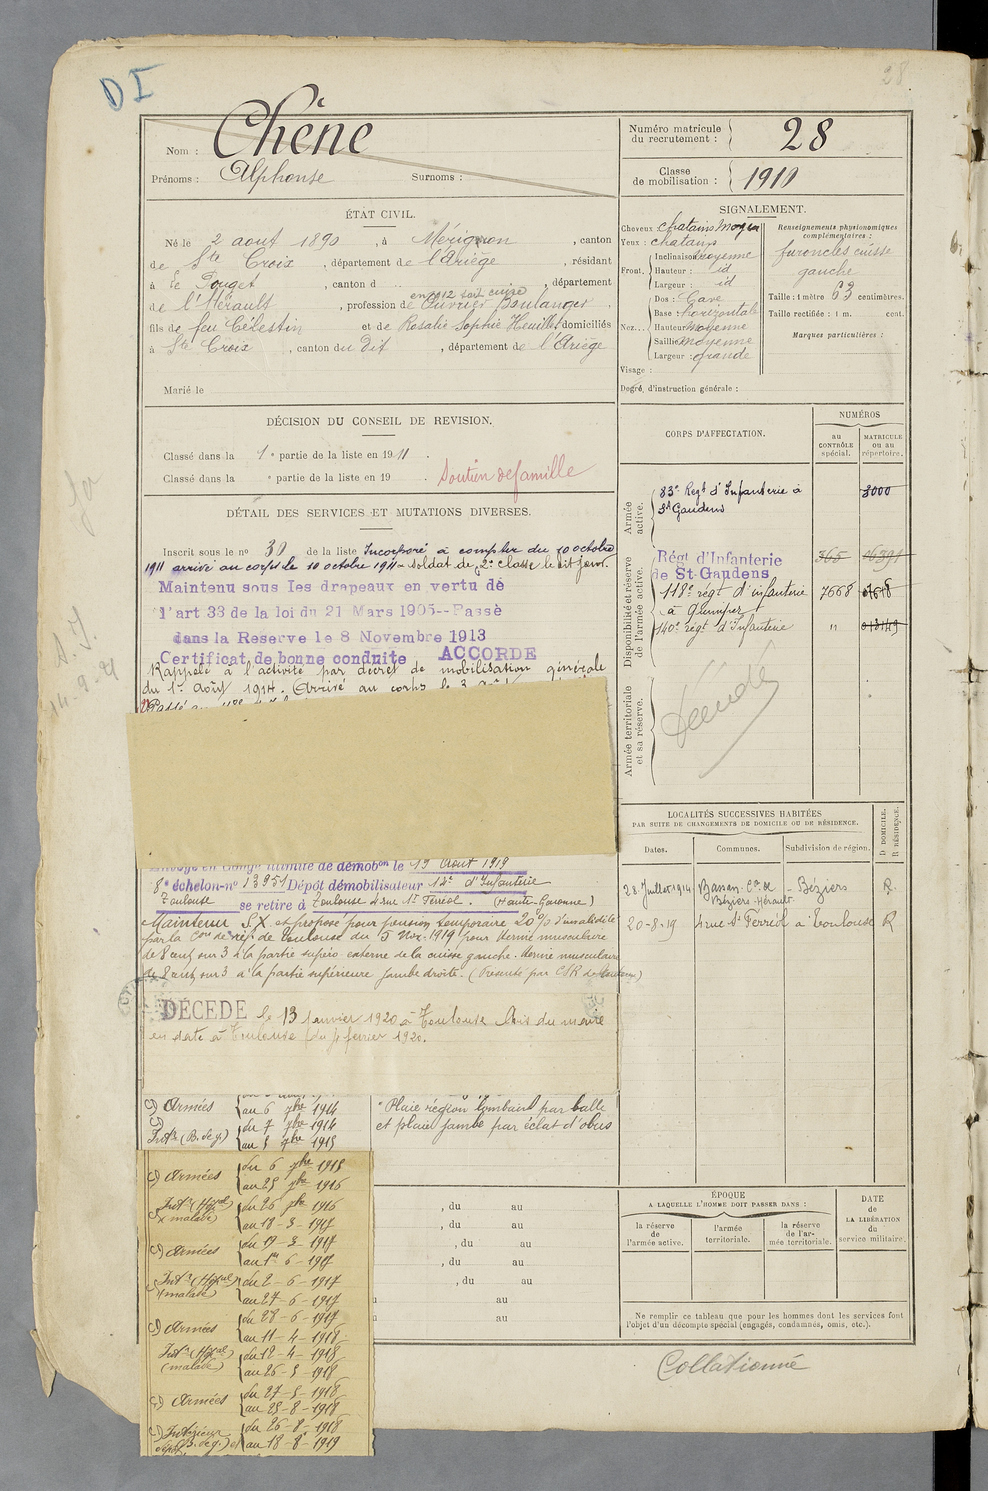 DI
28
Nom : Chêne
Prénoms : Alphonse Surnoms :
Numéro matricule
du recrutement : 28
Classe
de mobilisation : 1910
ÉTAT CIVIL.
Né le 2 aout 1890, à Mérignon, canton
de Ste Croix, département de l'Ariège, résidant
à le Pouget, canton d , département
en 1912 soit cuire
de l'Hérault, profession de Ouvrier Boulanger
fils de feu Célestin et de Rosalie Sophie domiciliés
à Ste Croix, canton du dit, département de l'Ariège
Marié le
SIGNALEMENT.
Cheveux : chatains moyen
Yeux : chatains
Front. Inclinaison moyenne
Hauteur : id
Largeur : id
Nez Dos : Cave
Base : horizontale
Hauteur moyenne
Saillie moyenne
Largeur : grande
Visage :
Renseignements physionomiques
complémentaires :
furoncles cuisse
gauche
Taille : 1 mètre 63 centimètres.
Taille rectifiée : 1 m. cent.
Marques particulières :
Degré, d'instruction générale :
DÉCISION DU CONSEIL DE REVISION.
Classé dans la 1e partie de la liste en 1911.
Classé dans la e partie de la liste en 19 . Soutien de famille
DÉTAIL DES SERVICES ET MUTATIONS DIVERSES.
Inscrit sous le no 30 de la liste Incorporé à compter du 10 octobre
1911 arrivé au corps le 10 octobre 1911 - soldat de 2e classe le dit jour.
Maintenu sous les drapeaux en vertu de
l'art 33 de la loi du 21 Mars 1905--Passé
dans la Reserve le 8 Novembre 1913
Certificat de bonne conduite ACCORDE
Rappelé à l'activité par décret de mobilisation générale
du 1er Août 1914. Arrivé au corps le 3
Passé au
Envoyé en congé illimité de démobon le 19 Août 1919
8e échelon-no 13951 Dépôt démobilisateur 14e d'Infanterie
Toulouse se retire à Toulouse 4 rue St Ferréol. (Haute-Garonne)
Maintenu S.X. et proposé pour pension temporaire 20% d'invalidité
par la Con de réf. de Toulouse du 5 Nov. 1919 pour hernie musculaire
de 8 cent sur 3 à la partie supéro-externe de la cuisse gauche. hernie musculaire
de 8 cent sur 3 à la partie supérieure jambe droite. (Présenté par CSR de Toulouse)
DÉCÉDÉ le 13 janvier 1920 à Toulouse Avis du maire
en date à Toulouse du 4 février 1920.
CORPS D'AFFECTATION.
NUMÉROS
au
CONTRÔLE
spécial.
MATRICULE
ou au
répertoire.
Armée
active.
83e Regt d'Infanterie à 3000
St Gaudens
Disponibilité et réserve
de l'armée active.
Régt d'Infanterie 365 16391
de St-Gaudens
118e régt d'infanterie 7668
à Quimper
140e régt d'Infanterie "
Armée territoriale
et sa réserve.
Décédé
LOCALITÉS SUCCESSIVES HABITÉES
PAR SUITE DE CHANGEMENTS DE DOMICILE OU DE RÉSIDENCE.
Dates. Communes. Subdivision de région. D. DOMICILE. R. RÉSIDENCE.
28 Juillet 1914 Bassan Con de Béziers R
Béziers-Hérault
20-8-19 4 rue St Ferréol à Toulouse R
C) Armées
au 6 7bre 1914
Intr (B. de g.) du 7 7bre 1914
au 5 7bre 1915
Plaie région lombaire par balle
et plaie jambe par éclat d'obus
C) Armées du 6 7bre 1915
au 25 7bre 1916
Intr (Hôpal) du 26 7bre 1916
malade) au 18-3-1917
C) Armées du 19-3-1917
au 1er 6-1917
Intr (Hôpal) du 2-6-1917
(malade) au 27-6-1917
C) Armées du 28-6-1917
au 11-4-1918
Intr (Hôpal) du 12-4-1918
(malade) au 26-5-1918
C) Armées du 27-5-1918
au 25-8-1918
C) Intérieur du 26-8-1918
(B. de g.) au 18-8-1919
, du au
, du au
, du au
, du au
au
au
ÉPOQUE
A LAQUELLE L'HOMME DOIT PASSER DANS :
la réserve
de
l'armée active.
l'armée
territoriale.
la réserve
de l'ar-
mée territoriale.
DATE
de
LA LIBÉRATION
du
service militaire.
Ne remplir ce tableau que pour les hommes dont les services font
l'objet d'un décompte spécial (engagés, condamnés, omis, etc.).
Collationné
14-9-21